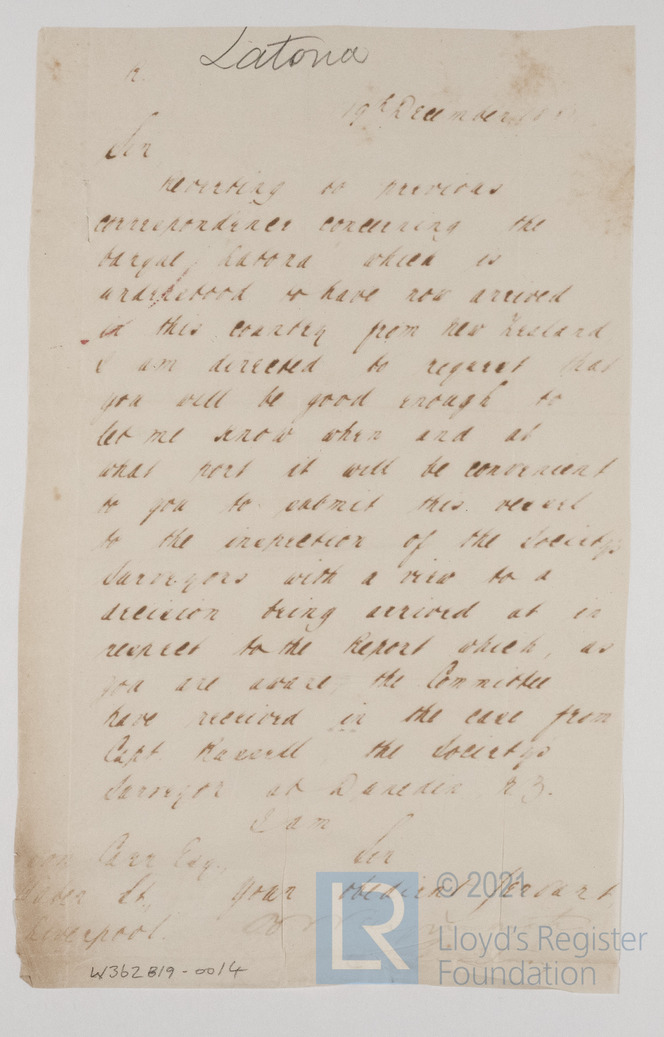 Latona
19th December
Sir
Reverting to previous
correspondence concerning the
barque, Latona which is
understood to have now arrived
in this country from New Zealand
I am directed to request that
you will be good enough to
let me know when and at
what port it will be convenient
to you to submit this vessel
to the inspection of the Society's
Surveyors with a view to a
decision being arrived at in
respect to the Report which, as
you are aware, the Committee
have received in the case from
Capt. the Society's
Surveyor at Dunedin N Z.
I am
Carr Esq., Sir
St., your obedient Servant
Liverpool.
W362819-0014
LR
© 2021
Lloyd's Register
Foundation